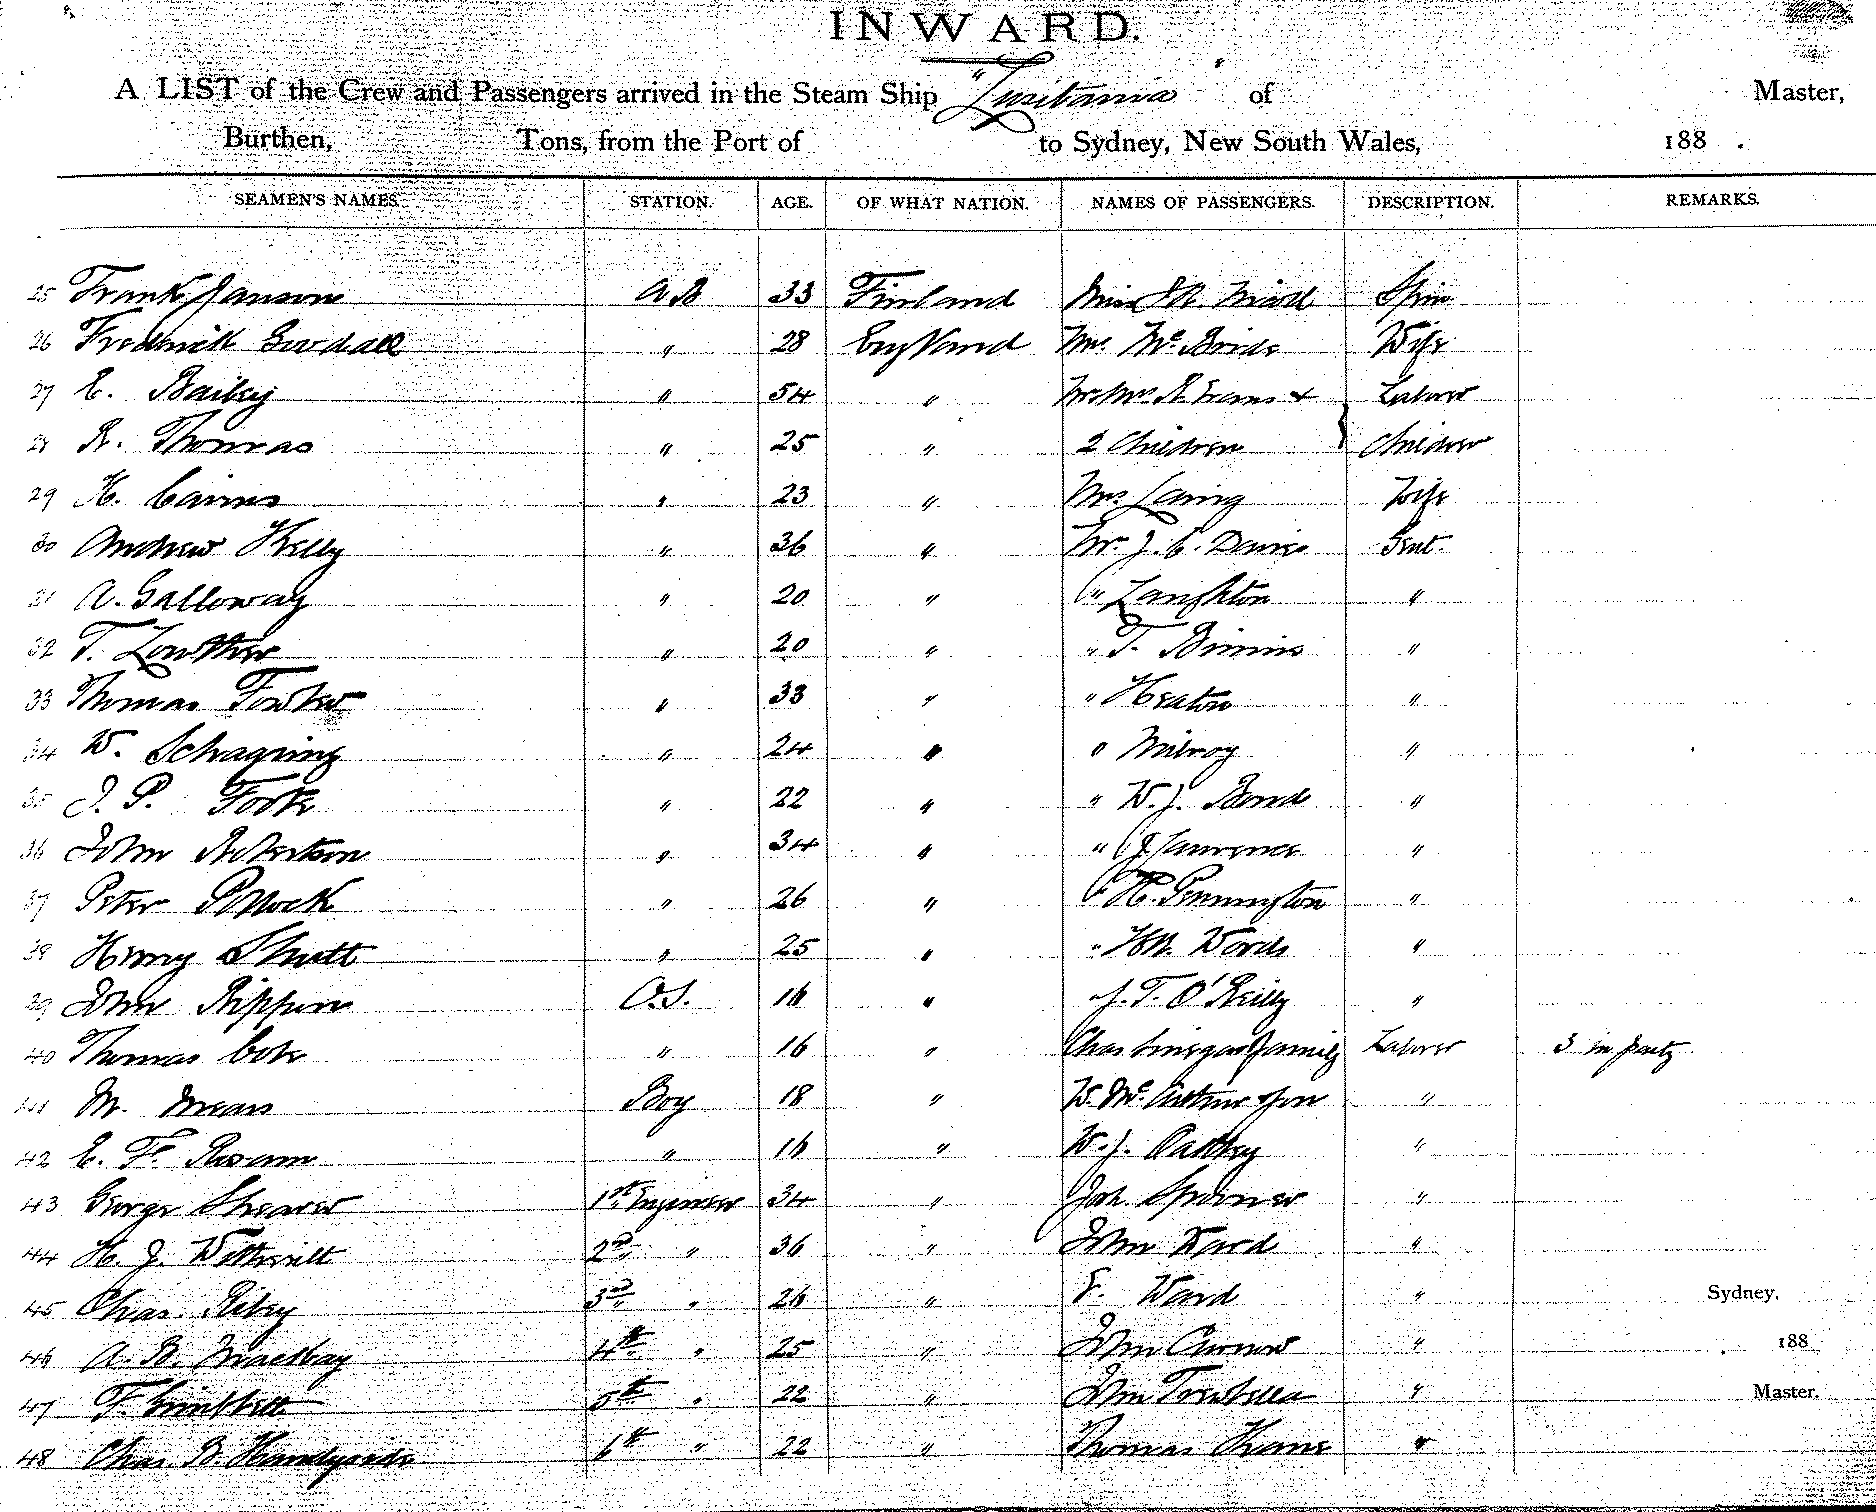 INWARD.
A LIST of the Crew and Passengers arrived in the Steam Ship "Lusitania" of Master,
Burthen, Tons, from the Port of to Sydney, New South Wales, 188 .
SEAMEN'S NAMES. STATION. AGE. OF WHAT NATION. NAMES OF PASSENGERS. DESCRIPTION. REMARKS.
25 Frank Janson A.B 33 Finland Miss Spin
26 Frederick 28 England Mrs McBride Wife
27 E. Bailey " 54 " Mr Mrs R. Evans + Laborer
28 R. Thomas " 25 " 2 Children Children
29 H. Cairns " 23 " Mrs Laing Wife
30 Andrew Kelly " 36 " Mr J. C. Davies Gent.
31 A. Galloway " 20 " " Langhton "
32 T. Lowther " 20 " " T. Binnis "
33 Thomas Fowler " 33 " " Heaton "
34 W. " 24 " " Milroy "
35 J. P. Foote " 22 " " W. J. Bond "
36 John Robertson " 34 " " J Lawrence "
37 Peter Pollock " 26 " " H. Pennington "
38 Henry Shutt " 25 " " Woods "
39 John Rippin O.S. 16 " " J. T. O'Reilly "
40 Thomas Cole " 16 " Chas Finegan family Laborer 3 in party
41 M. Means Boy 18 " W. McArthur & son "
42 E. F. " 16 " W. J. Oakley "
43 George Shearer 1st Engineer 34 " Spooner "
44 H. J. 2nd " 36 " John Ward "
45 Chas. Riley 3rd " 26 " F. Ward " Sydney,
46 A. B. Mackay 4th " 25 " John Curnow " 188
47 F. 5th " 22 " John " Master.
48 Chas. B. Handyside 6th " 22 " Thomas "